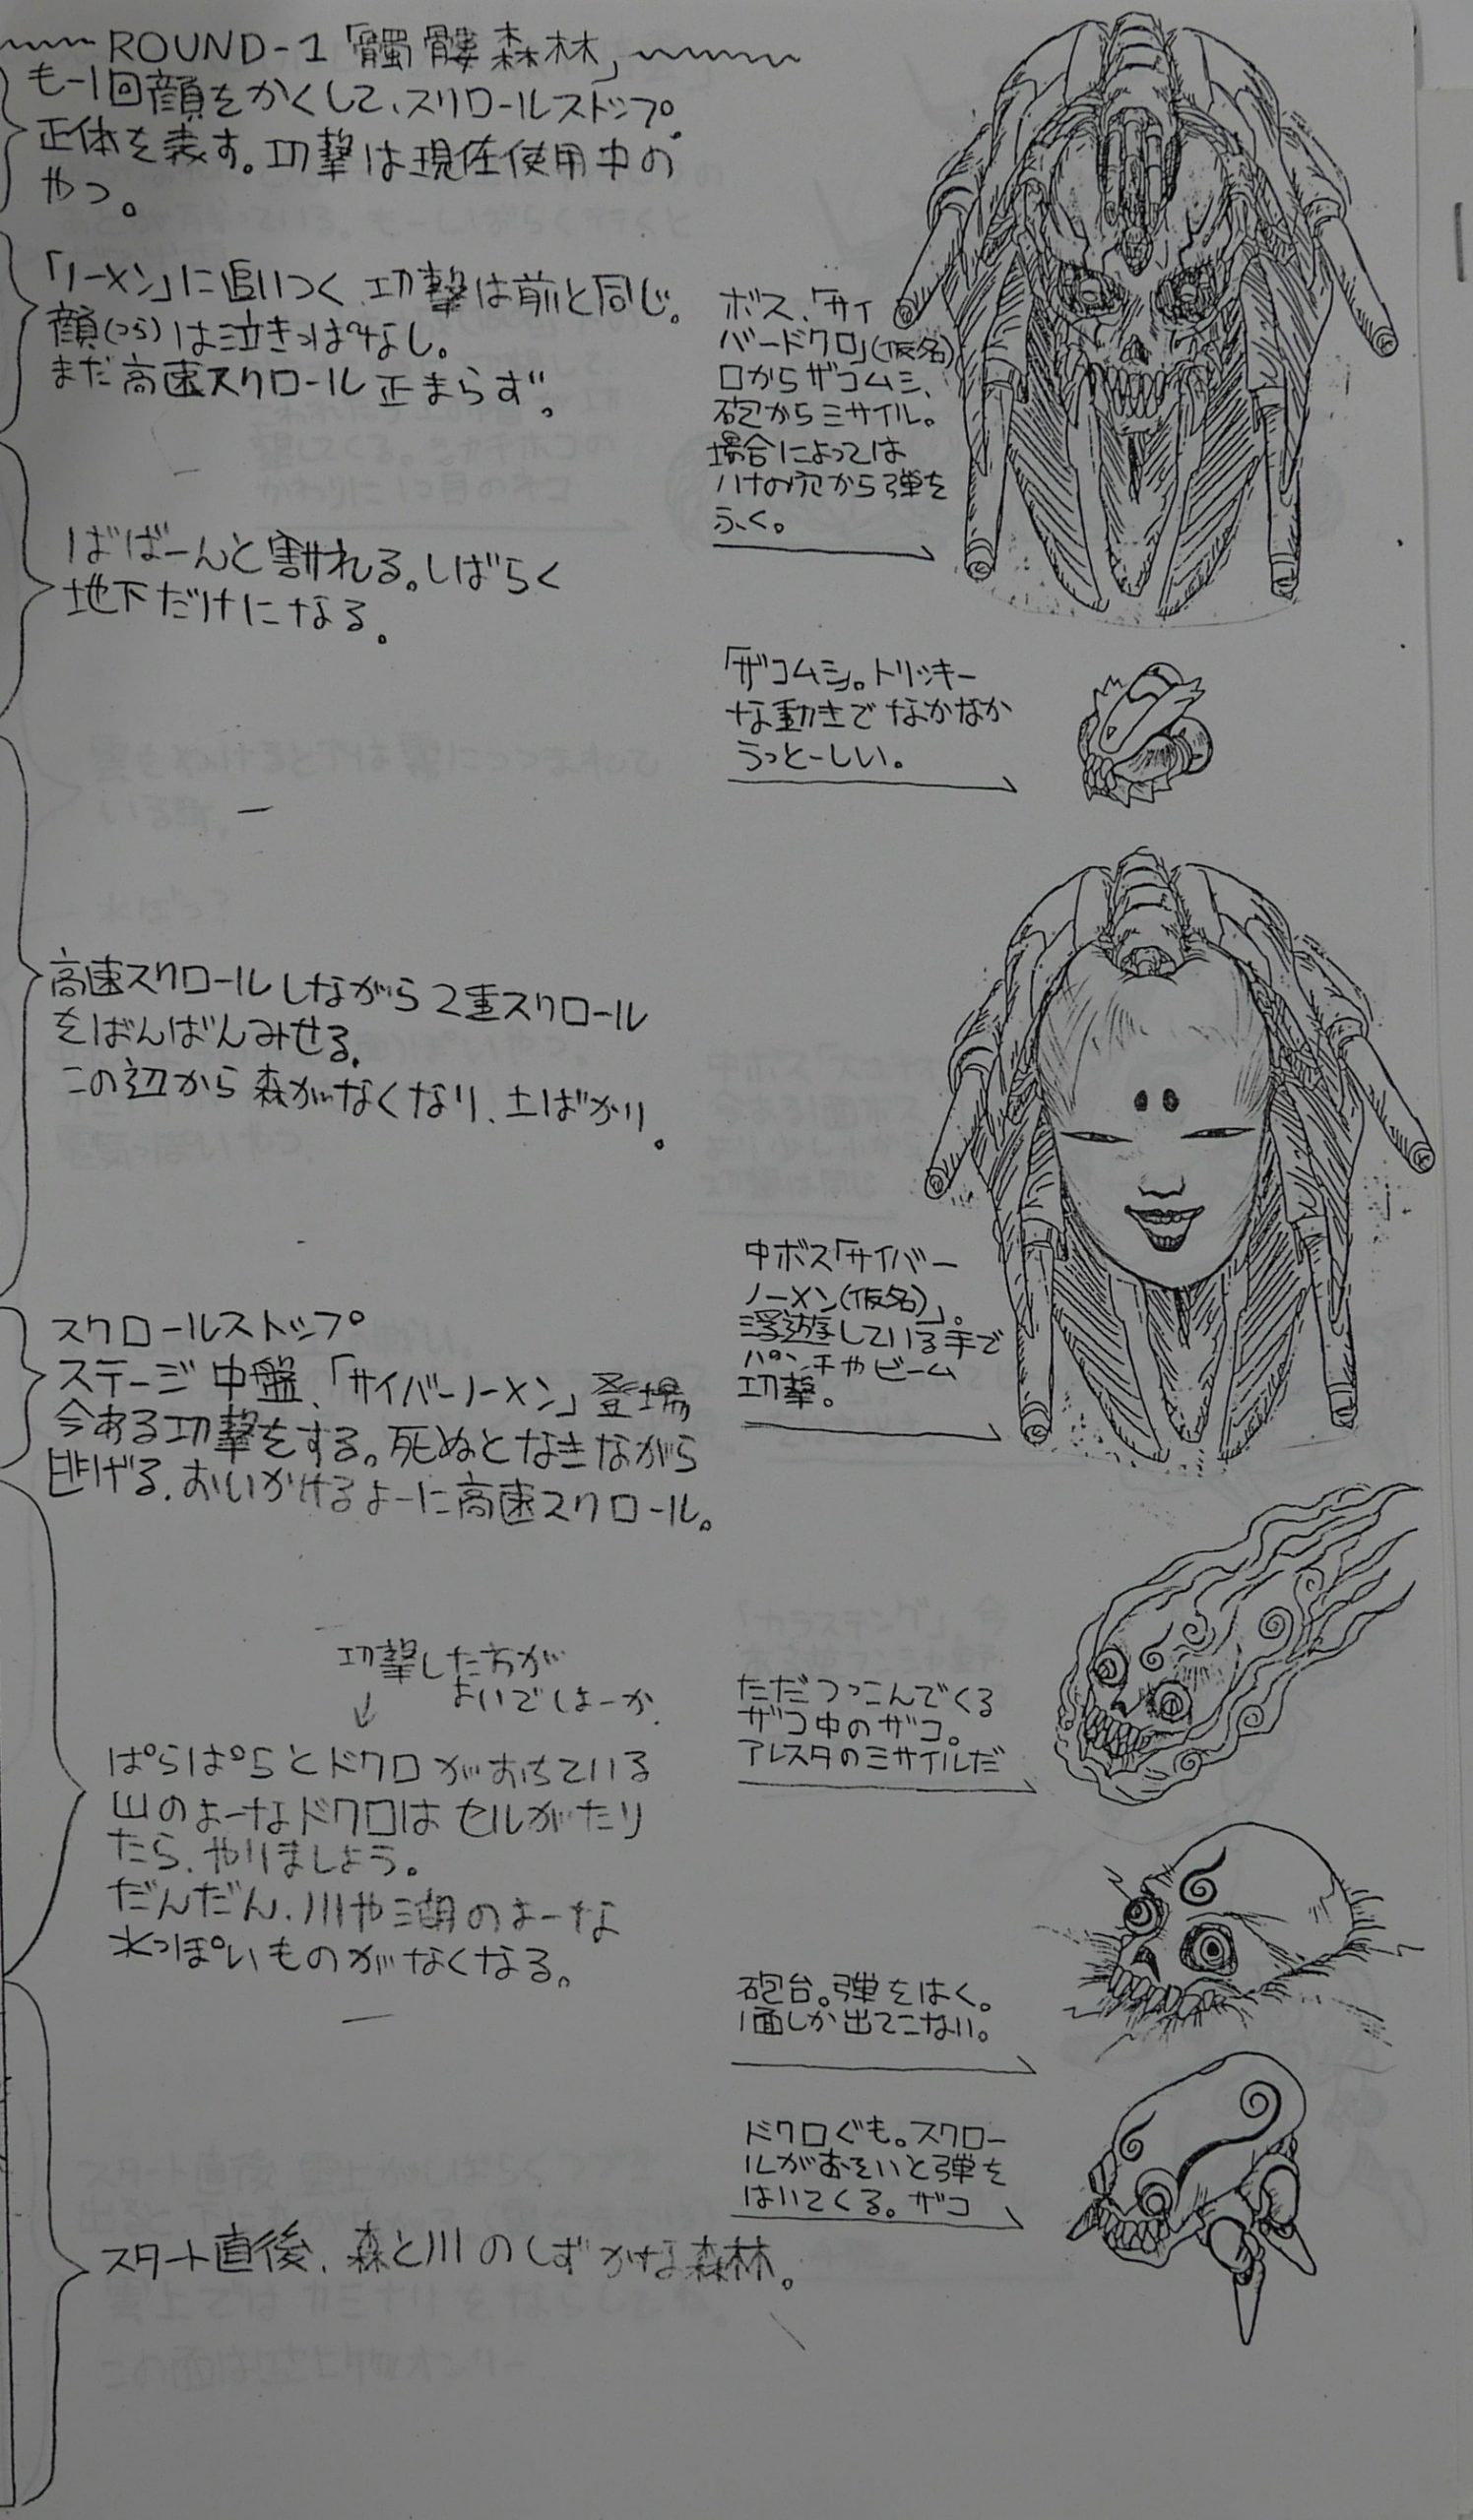 ROUND-1「髑髏森林」
も一1回顔をかくして、スクロールストップ。
正体を表す。攻撃は現在使用中の
やつ。
「ノーメン」に追いつく、攻撃は前と同じ。
顔(つら)は泣きっぱなし。
まだ高速スクロール止まらず。
ばばーんと割れる。しばらく
地下だけになる。
高速スクロールしながら2重スクロール
をばんばんみせる。
この辺から森がなくなり、土ばかり。
スクロールストップ
ステージ中盤、「サイバーノーメン」登場
今ある攻撃をする。死ぬとなきながら
逃げる。おいかけるよーに高速スクロール。
攻撃した方が
よいでしょーか。
↓
ぱらぱらとドクロがおちている
山のよーなドクロはセルがたり
たら、やりましょう。
だんだん、川や湖のよーな
水っぽいものがなくなる。
スタート直後、森と川のしずかな森林。
ボス、「サイ
バードクロ」(仮名)
口からザコムシ、
砲からミサイル。
場合によっては
ハナの穴から弾を
ふく。
「ザコムシ」。トリッキー
な動きでなかなか
うっとーしい。
中ボス「サイバー
ノーメン(仮名)」。
浮遊している手で
パンチやビーム
攻撃。
ただつっこんでくる
ザコ中のザコ。
アレスタのミサイルだ
砲台。弾をはく。
1面しか出てこない。
ドクロぐも。スクロー
ルがおそいと弾を
はいてくる。ザコ